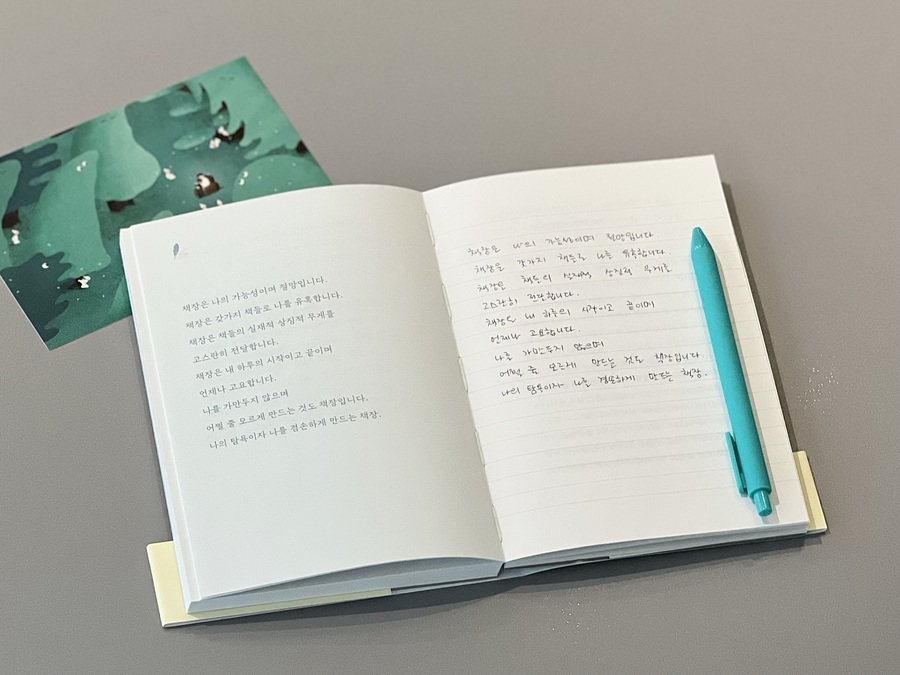 책장은 나의 가능성이며 절망입니다.
책장은 갖가지 책들로 나를 유혹합니다.
책장은 책들의 실재적 상징적 무게를
고스란히 전달합니다.
책장은 내 하루의 시작이고 끝이며
언제나 고요합니다.
나를 가만두지 않으며
어쩔 줄 모르게 만드는 것도 책장입니다.
나의 탐욕이자 나를 겸손하게 만드는 책장.
책장은 나의 가능성이며 절망입니다
책장은 갖가지 책들로 나를 유혹합니다.
책장은 책들의 실재적 상징적 무게를
고스란히 전달합니다.
책장은 내 하루의 시작이고 끝이며
언제나 고요합니다.
나를 가만두지 않으며
어쩔 줄 모르게 만드는 것도 책장입니다.
나의 탐욕이자 나를 겸손하게 만드는 책장.